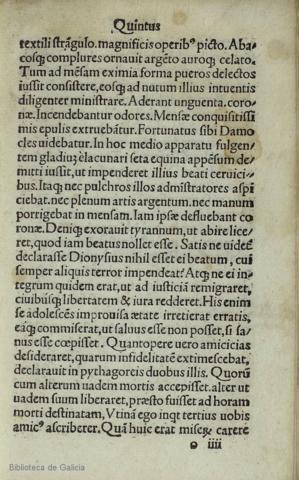 Quintus
textili strāgulo. magnificis operibꝰ picto. Aba⸗
cosqꝫ complures ornauit argēto auroqꝫ celato.
Tum ad mēsam eximia forma pueros delectos
iussit consistere, eosqꝫ ad nutum illius intuentis
diligenter ministrare. Aderant unguenta. coro⸗
næ. Incendebantur odores. Mensæ conquisitissi
mis epulis extruebātur. Fortunatus sibi Damo
cles uidebatur. In hoc medio apparatu fulgen⸗
tem gladiuꝫ è lacunari seta equina appēsum de⸗
mitti iussit, ut impenderet illius beati ceruici⸗
bus. Itaqꝫ nec pulchros illos admistratores aspi
ciebat. nec plenum artis argentum. nec manum
porrigebat in mensam. Iam ipsæ defluebant co
ronæ. Deniqꝫ exorauit tyrannum, ut abire lice⸗
ret, quod iam beatus nollet esse. Satis ne uidet̄
declarasse Dionysius nihil esset ei beatum, cui
semper aliquis terror impendeat? Atqꝫ ne ei in⸗
tegrum quidem erat, ut ad iusticiā remigraret,
ciuibusqꝫ libertatem & iura redderet. His enim
se adolescēs improuisa ætate irretierat erratis,
eaqꝫ commiserat, ut saluus esse non posset, si sa⸗
nus esse cœpisset. Quantopere uero amicicias
desideraret, quarum infidelitatē extimescebat,
declarauit in pythagoreis duobus illis. Quorū
cum alterum uadem mortis accepisset. alter ut
uadem suum liberaret, præsto fuisset ad horam
morti destinatam, Vtinā ego inqt tertius uobis
amicꝰ ascriberer. Quā huic erat miseꝝ carere
iiii
Biblioteca de Galicia